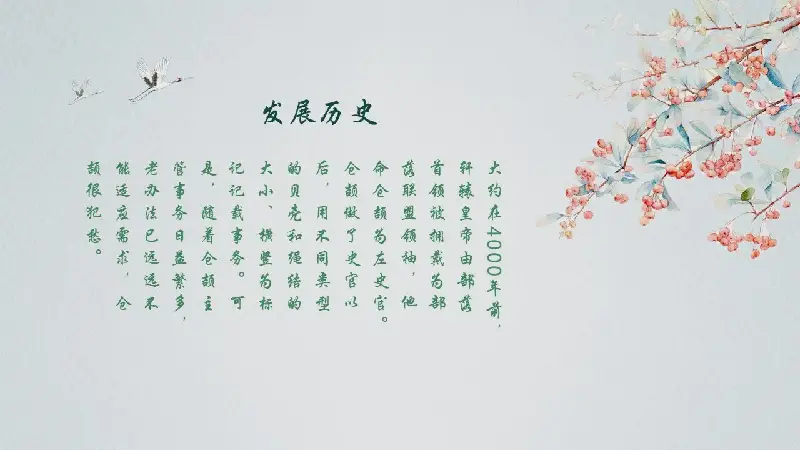 发展历史
大约在4000年前，
轩辕皇帝由部落
首领被拥戴为部
落联盟领袖，他
命仓颉为左史官。
仓颉做了史官以
后，用不同类型
的贝壳和绳结的
大小、横竖为标
记记载事务。可
是，随着仓颉主
管事务日益繁多，
老办法已远远不
能适应需求，仓
颉很犯愁。